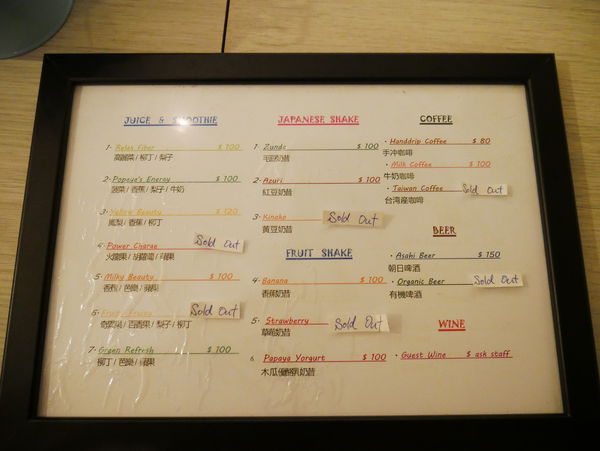 JUICE & SMOOTHIE
1. Relax Fiber $ 100
高麗菜 / 柳丁 / 梨子
2. Popeye's Energy $ 100
菠菜 / 香蕉 / 梨子 / 牛奶
3. Yellow Beauty $ 120
鳳梨 / 香蕉 / 柳丁
4. Power Charge Sold Out
火龍果 / 胡蘿蔔 / 蘋果
5. Milky Beauty $ 100
香蕉 / 芭樂 / 蘋果
6. Fruity Sold Out
奇異果 / 百香果 / 梨子 / 柳丁
7. Green Refresh $ 100
柳丁 / 芭樂 / 蘋果
JAPANESE SHAKE
1. Zunda $ 100
毛豆奶昔
2. Azuri $ 100
紅豆奶昔
3. Kinako Sold Out
黃豆奶昔
FRUIT SHAKE
4. Banana $ 100
香蕉奶昔
5. Strawberry Sold Out
草莓奶昔
6. Papaya Yorgurt $ 100
木瓜優酪乳奶昔
COFFEE
・Handdrip Coffee $ 80
手沖咖啡
・Milk Coffee $ 100
牛奶咖啡
・Taiwan Coffee Sold Out
台湾産咖啡
BEER
・Asahi Beer $ 150
朝日啤酒
・Organic Beer Sold Out
有機啤酒
WINE
・Guest Wine $ ask staff